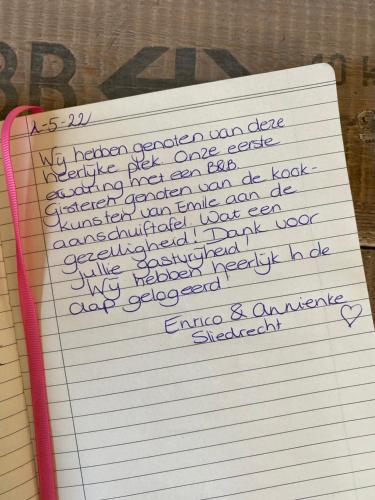 BR
1-5-22
Wij hebben genoten van deze
heerlijke plek. Onze eerste
ervaring met een B&B
Gisteren genoten van de kook-
kunsten van Emile aan de
aanschuiftafel. Wat een
gezelligheid! Dank voor
jullie gastvrijheid!
Wij hebben heerlijk in de
aap gelogeerd!
Enrico & Annienke
Sliedrecht